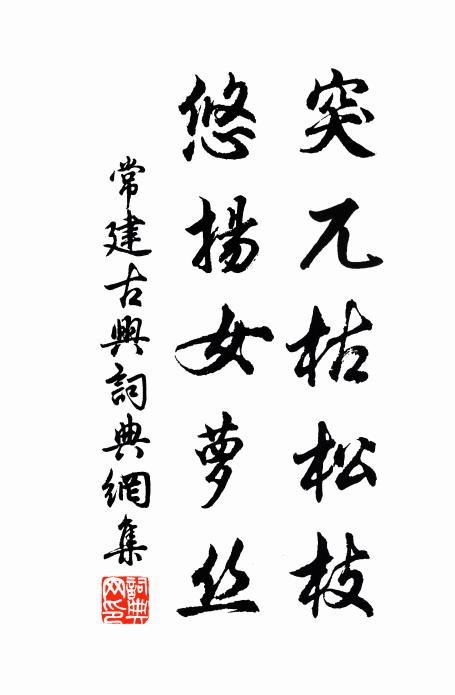 突兀枯松枝
悠揚女萝丝
常建古興詞典網集
詞典網印